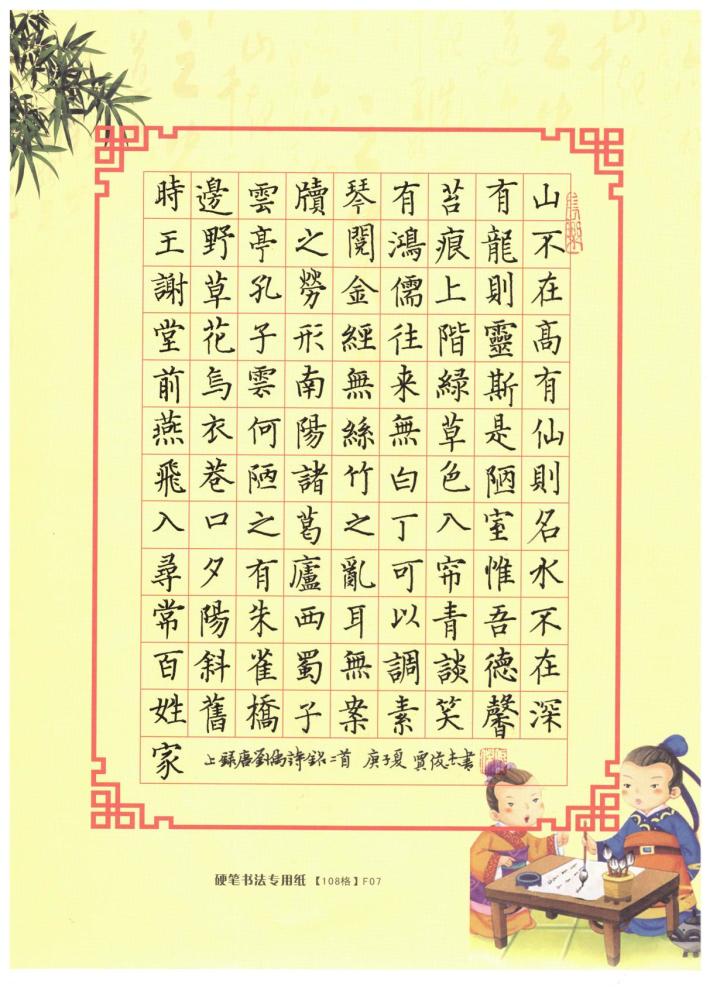 山不在高有仙則名水不在深
有龍則靈斯是陋室惟吾德馨
苔痕上階緑草色入帘青談笑
有鴻儒往来無白丁可以調素
琴閱金經無絲竹之亂耳無案
牘之勞形南陽諸葛廬西蜀子
雲亭孔子雲何陋之有朱雀橋
邊野草花烏衣巷口夕陽斜舊
時王謝堂前燕飛入尋常百姓家
上錄唐劉禹詩銘二首 庚子夏 書
硬笔书法专用纸 【108格】F07